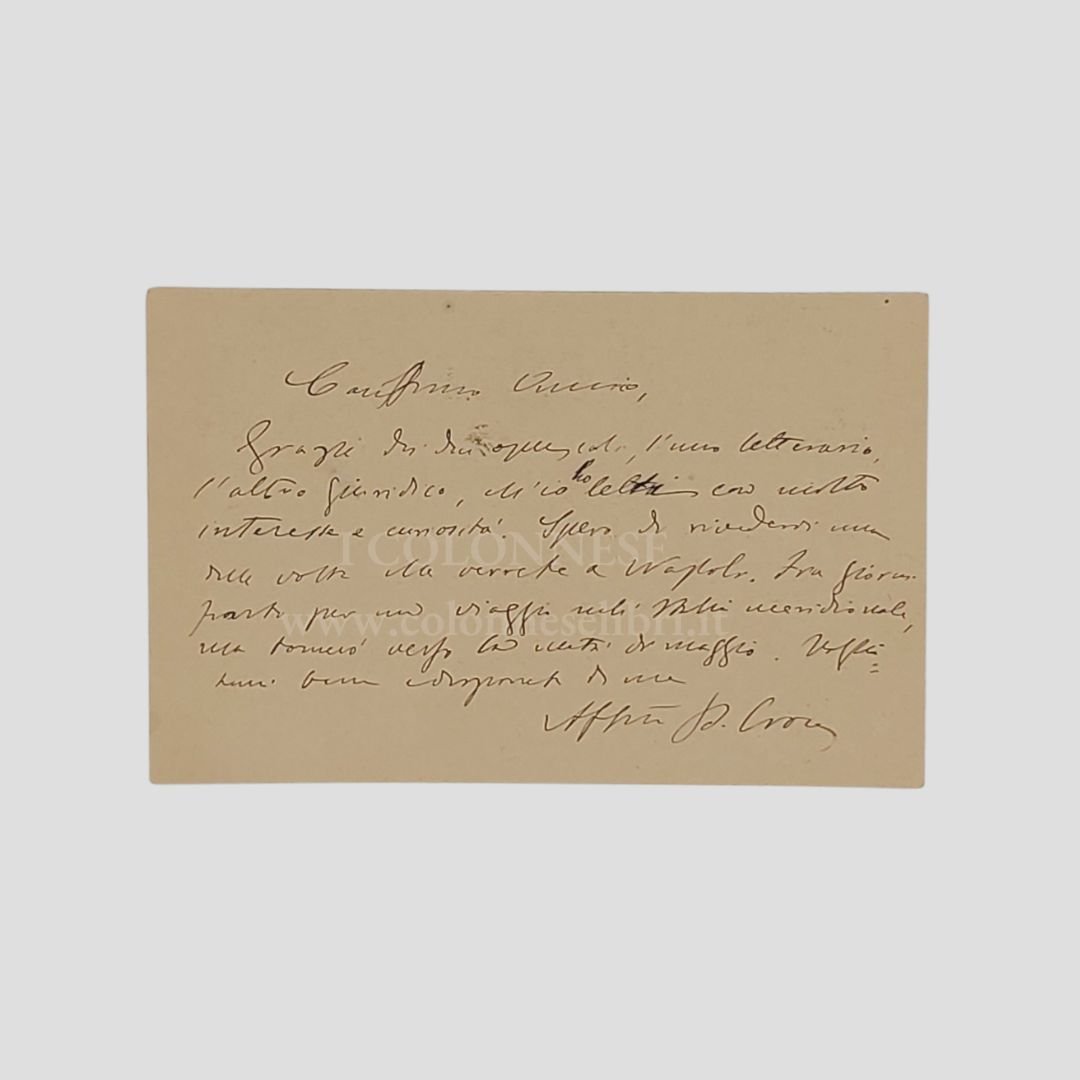 Carissimo Amico,
Grazie dei due opuscoli, l'uno letterario,
l'altro giuridico, ch'io ho letti con molto
interesse e curiosità. Spero di rivedervi una
delle volte che verrete a Napoli. Fra giorni
parto per un viaggio nell'Italia meridionale,
ma tornerò verso la metà di maggio. Voglia=
temi bene e disponete di me
Affmo B. Croce
I COLONNESE
www.colonneselibri.it